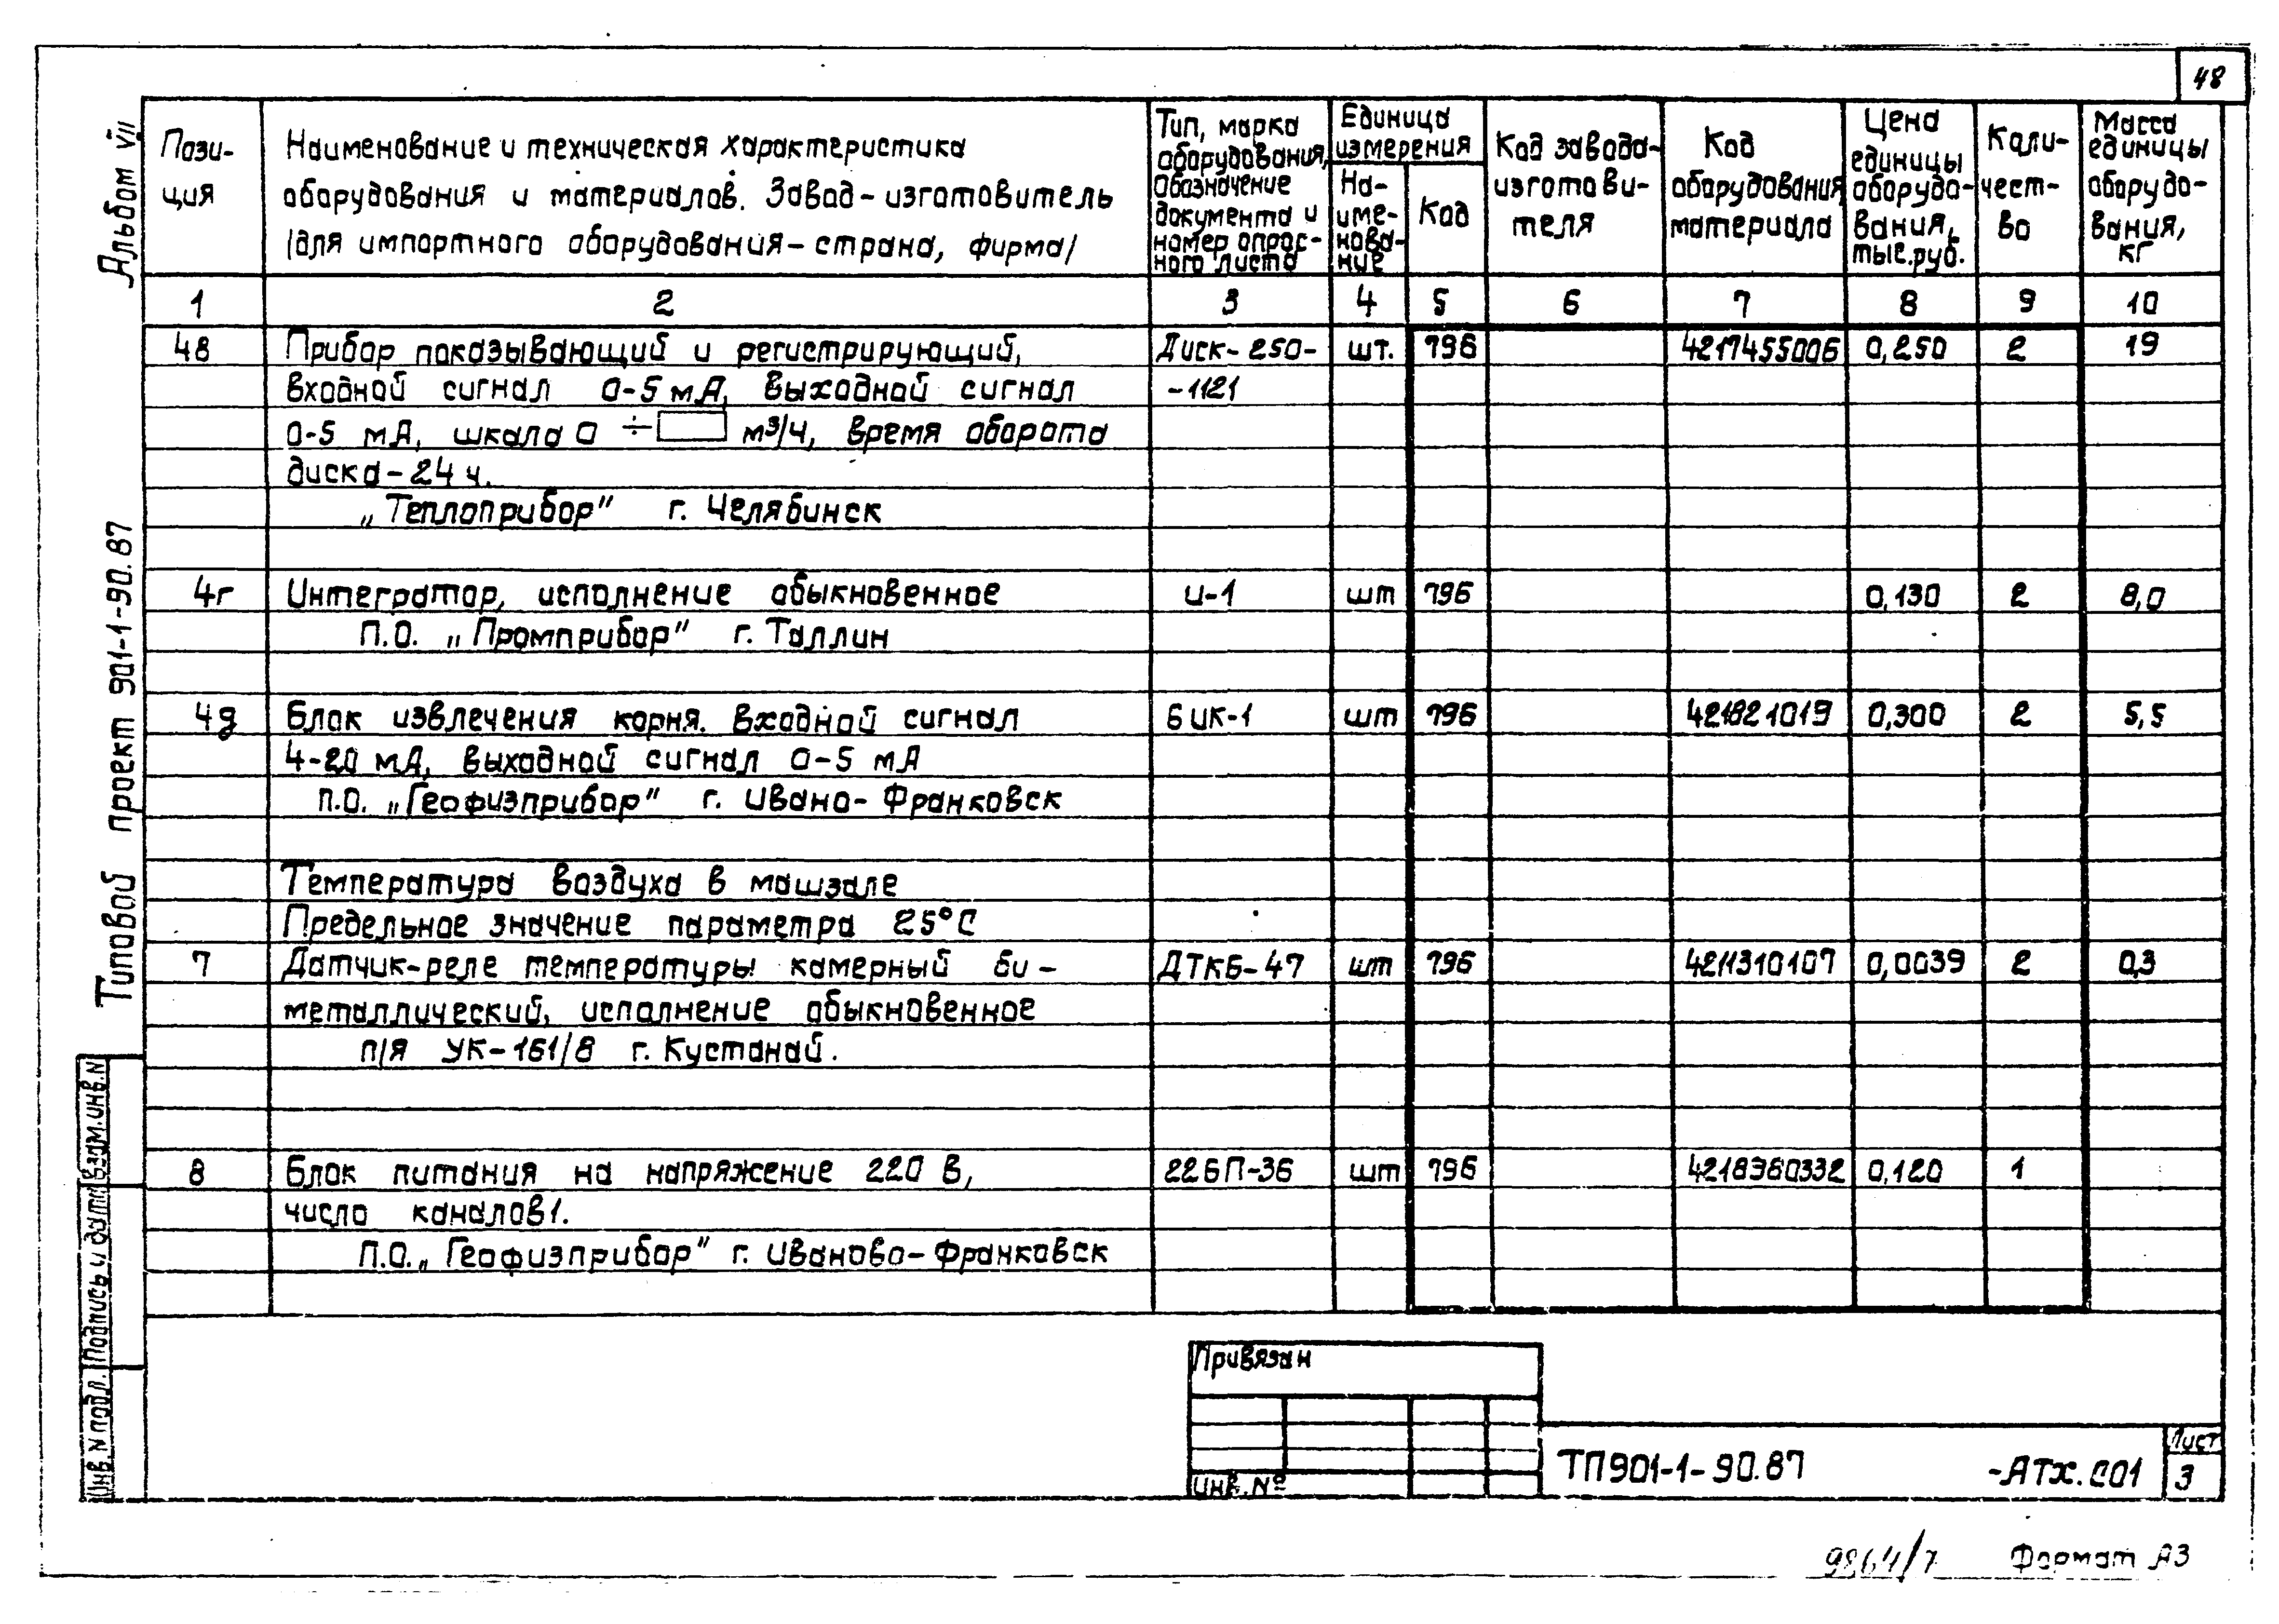 48
Альбом VII
Типовой проект 901-1-90.87
Пози-
ция
Наименование и техническая характеристика
оборудования и материалов. Завод-изготовитель
/для импортного оборудования-страна, фирма/
Тип, марка
оборудования,
Обозначение
документа и
номер опрос-
ного листа
Единица
измерения
На-
име-
нова-
ние
Код
Код завода-
изготови-
теля
Код
оборудования,
материала
Цена
единицы
оборудо-
вания,
тыс.руб.
Коли-
чест-
во
Масса
единицы
оборудо-
вания,
кг
1 2 3 4 5 6 7 8 9 10
4в Прибор показывающий и регистрирующий, Диск-250- шт. 796 4217455006 0,250 2 19
входной сигнал 0-5 мА, выходной сигнал -1121
0-5 мА, шкала 0 ÷ м³/ч, время оборота
диска-24 ч.
„Теплоприбор" г. Челябинск
4г Интегратор, исполнение обыкновенное И-1 шт 796 0,130 2 8,0
П.О. „Промприбор" г. Таллин
4д Блок извлечения корня. Входной сигнал БИК-1 шт 796 421821019 0,300 2 5,5
4-20 мА, выходной сигнал 0-5 мА
П.О. „Геофизприбор" г. Ивано-Франковск
Температура воздуха в машзале
Предельное значение параметра 25°С
7 Датчик-реле температуры камерный би- ДТКБ-47 шт 796 4211310107 0,0039 2 0,3
металлический, исполнение обыкновенное
п/я УК-161/8 г. Кустанай.
8 Блок питания на напряжение 220 В, 22БП-36 шт 796 4218360332 0,120 1
число каналов 1.
П.О. „Геофизприбор" г. Иваново-Франковск
Взам.инв.N
Подпись и дата
Инв.N подл.
Привязан
Инв.№
ТП901-1-90.87 -АТХ.С01
Лист
3
9864/7 Формат А3